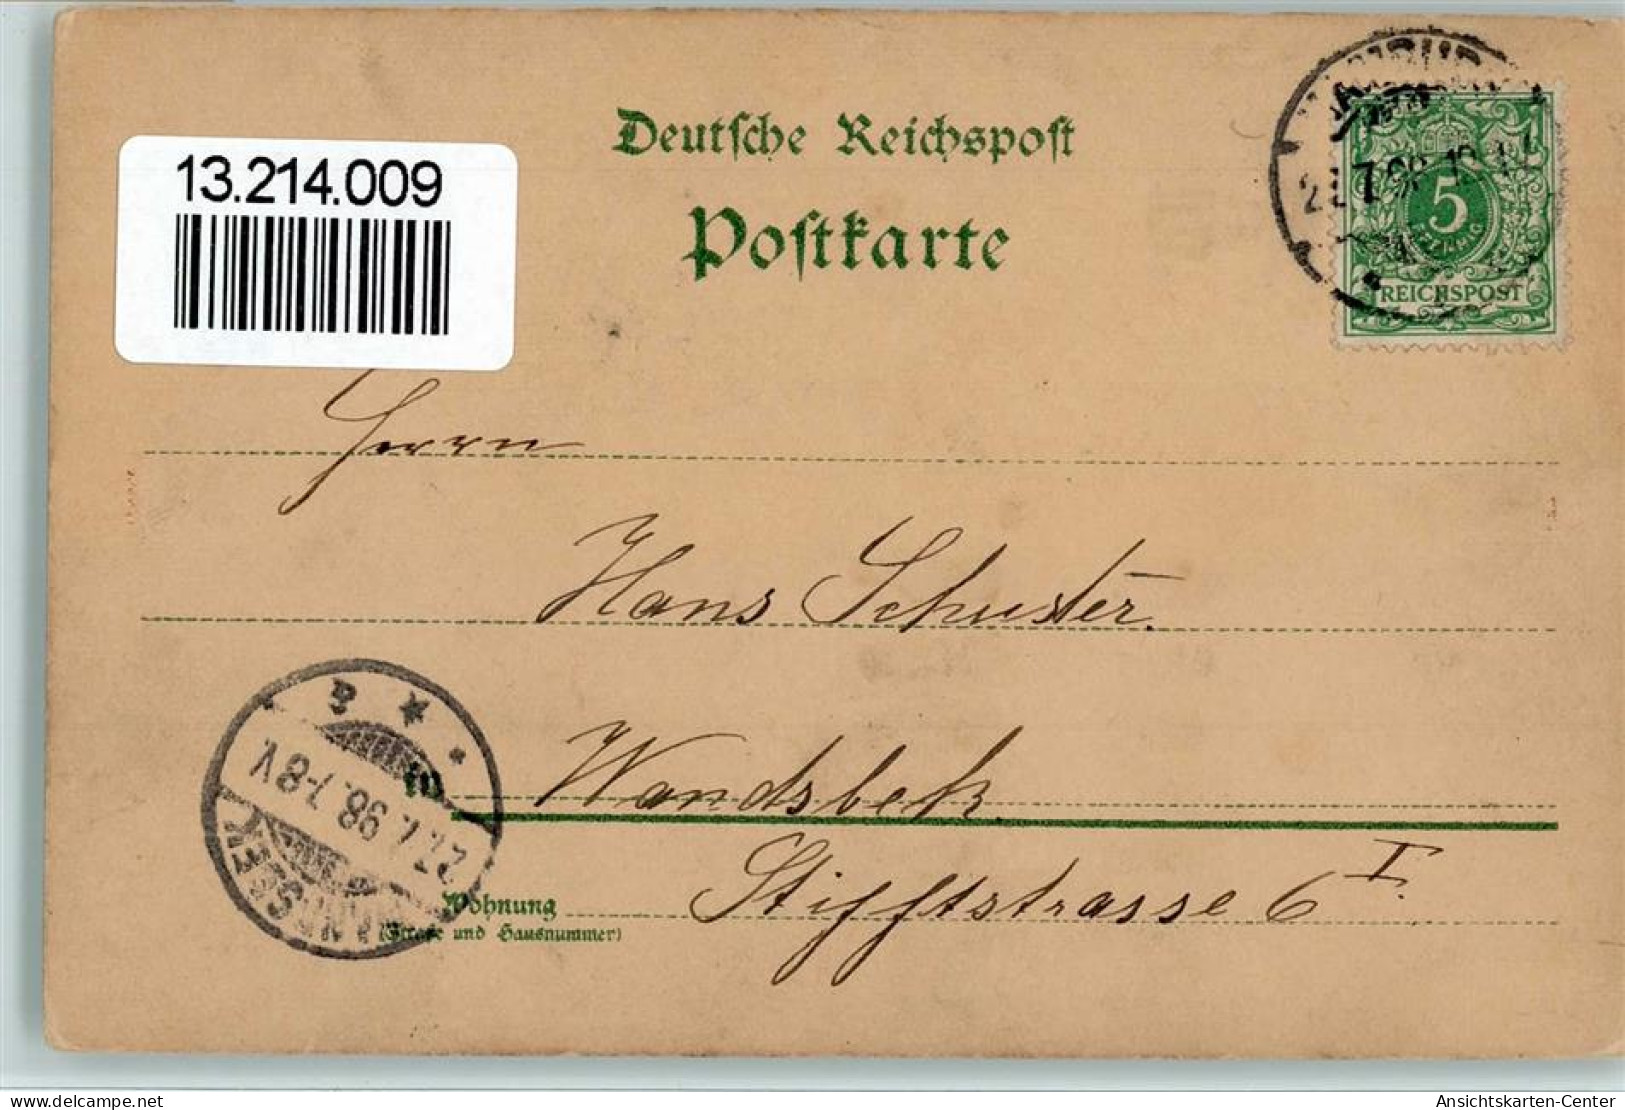 13.214.009
Deutsche Reichspost
Postkarte
5
PFENNIG
REICHSPOST
Herrn
Hans Schuster.
Wandsbek.
in
WANDSBEK
27.7.98. 7-8V.
Wohnung
(Straße und Hausnummer)
Stifftstrasse 6 I.
delcampe.net
Ansichtskarten-Center